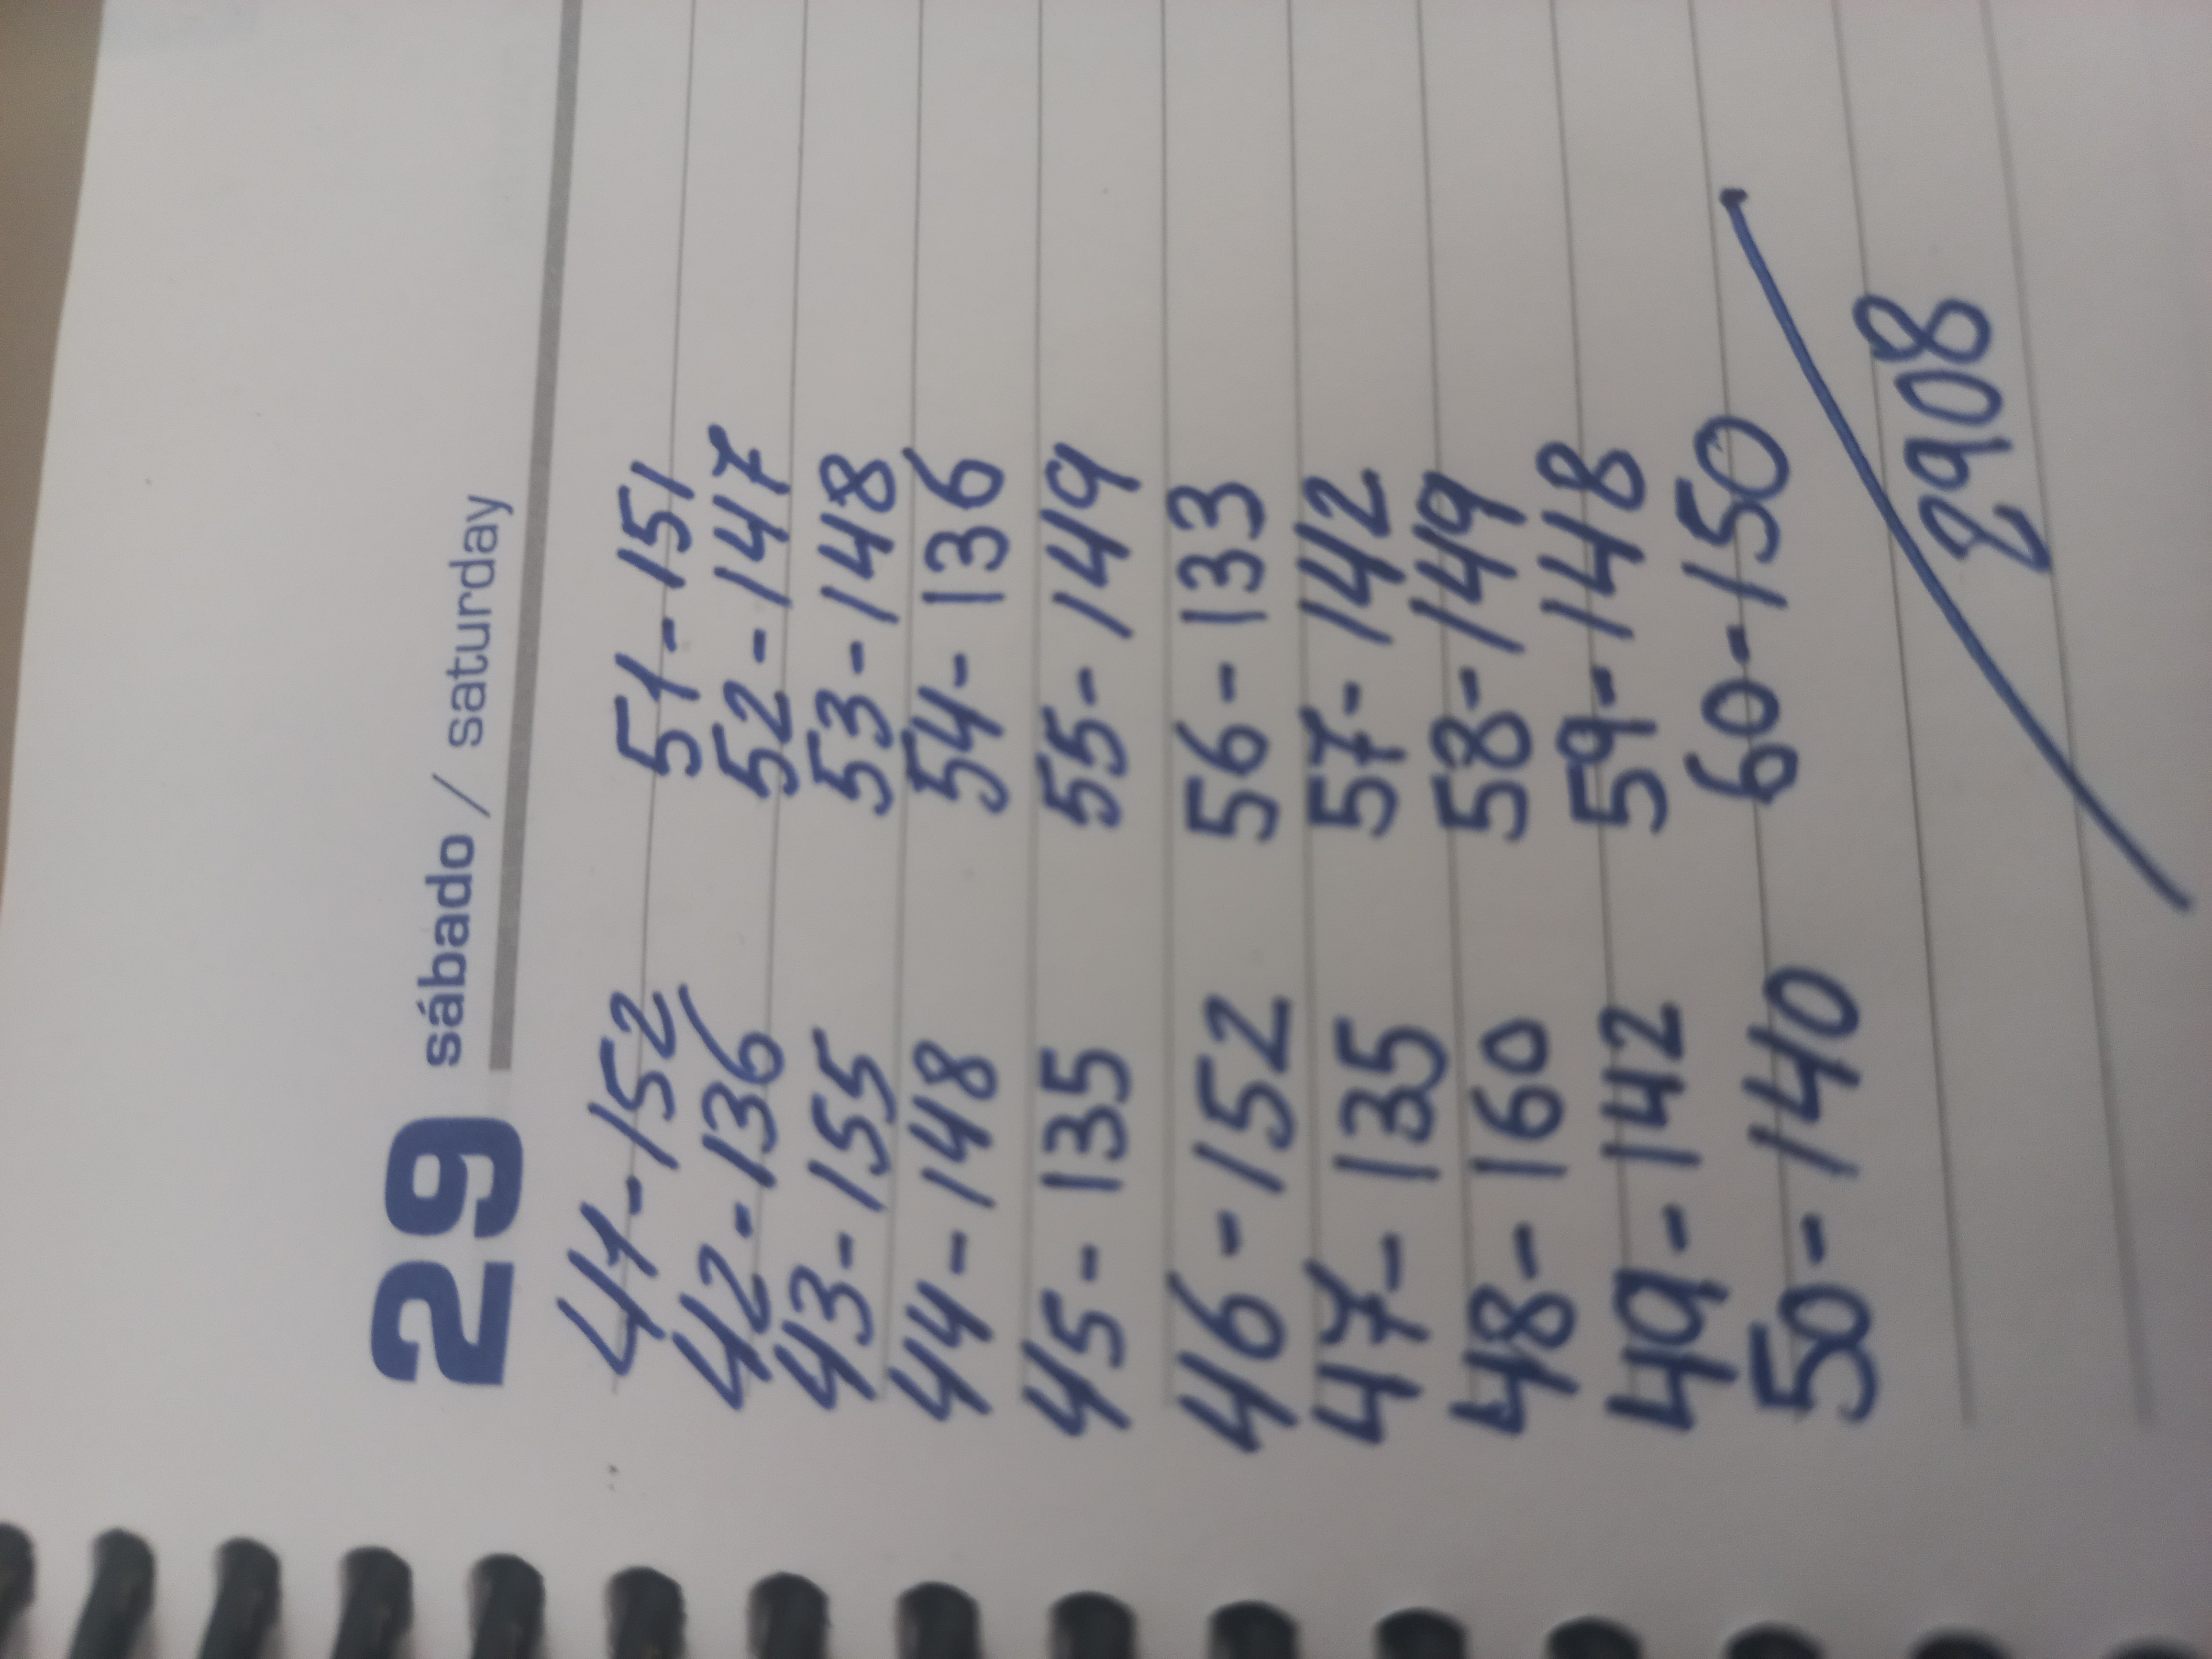 29 sábado / saturday
41-152 51-151
42-136 52-147
43-155 53-148
44-148 54-136
45-135 55-149
46-152 56-133
47-135 57-142
48-160 58-149
49-142 59-148
50-140 60-150
2908